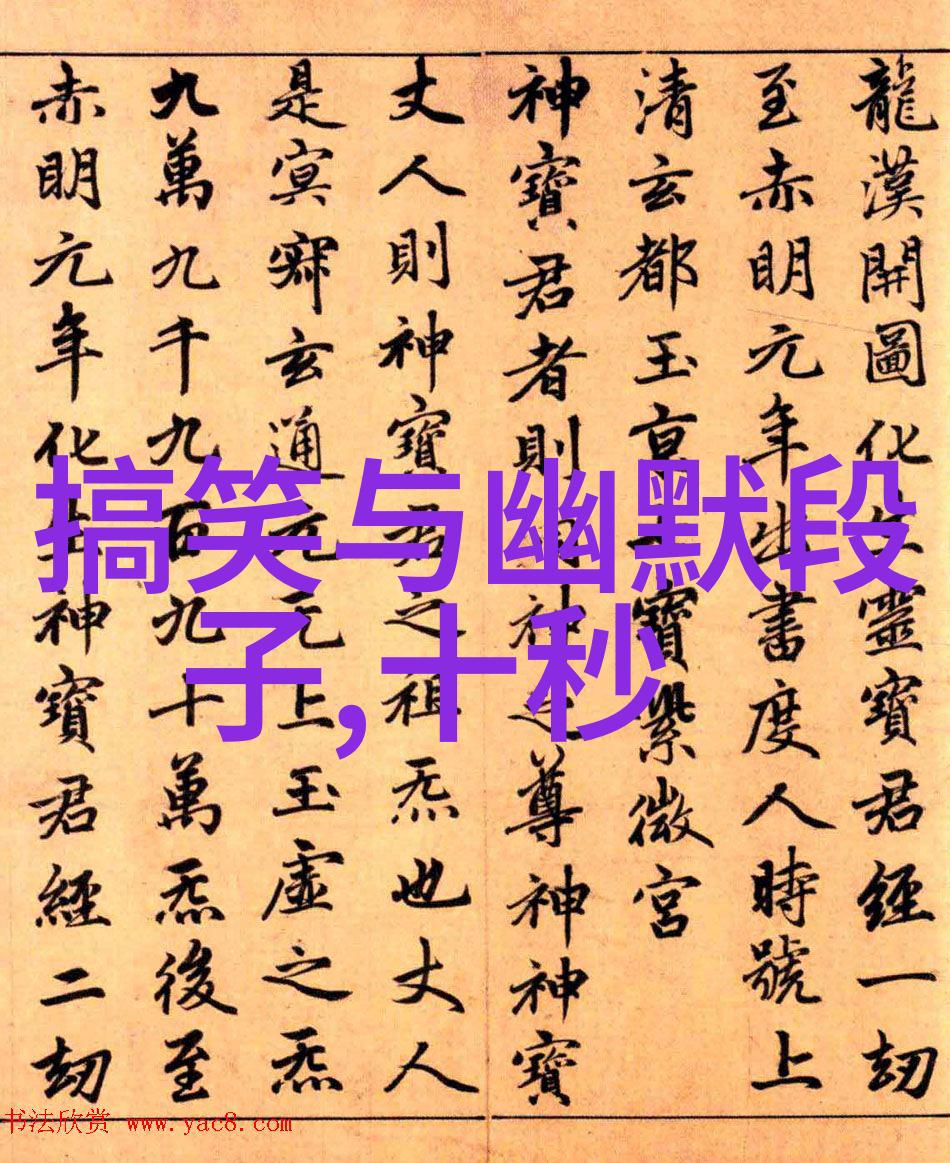 龍漢開圖化靈寶君經一劫
至赤明元年出書度人時號上
清玄都玉京七寶紫微宮
神寶君者則神之尊神神寶
丈人則神寶君之祖炁也丈人
是冥寂玄通元无上玉虛之炁
九萬九千九百九十萬炁後至
赤明元年化生神寶君經二劫
搞笑与幽默段
子,十秒
书法欣赏 www.yac8.com